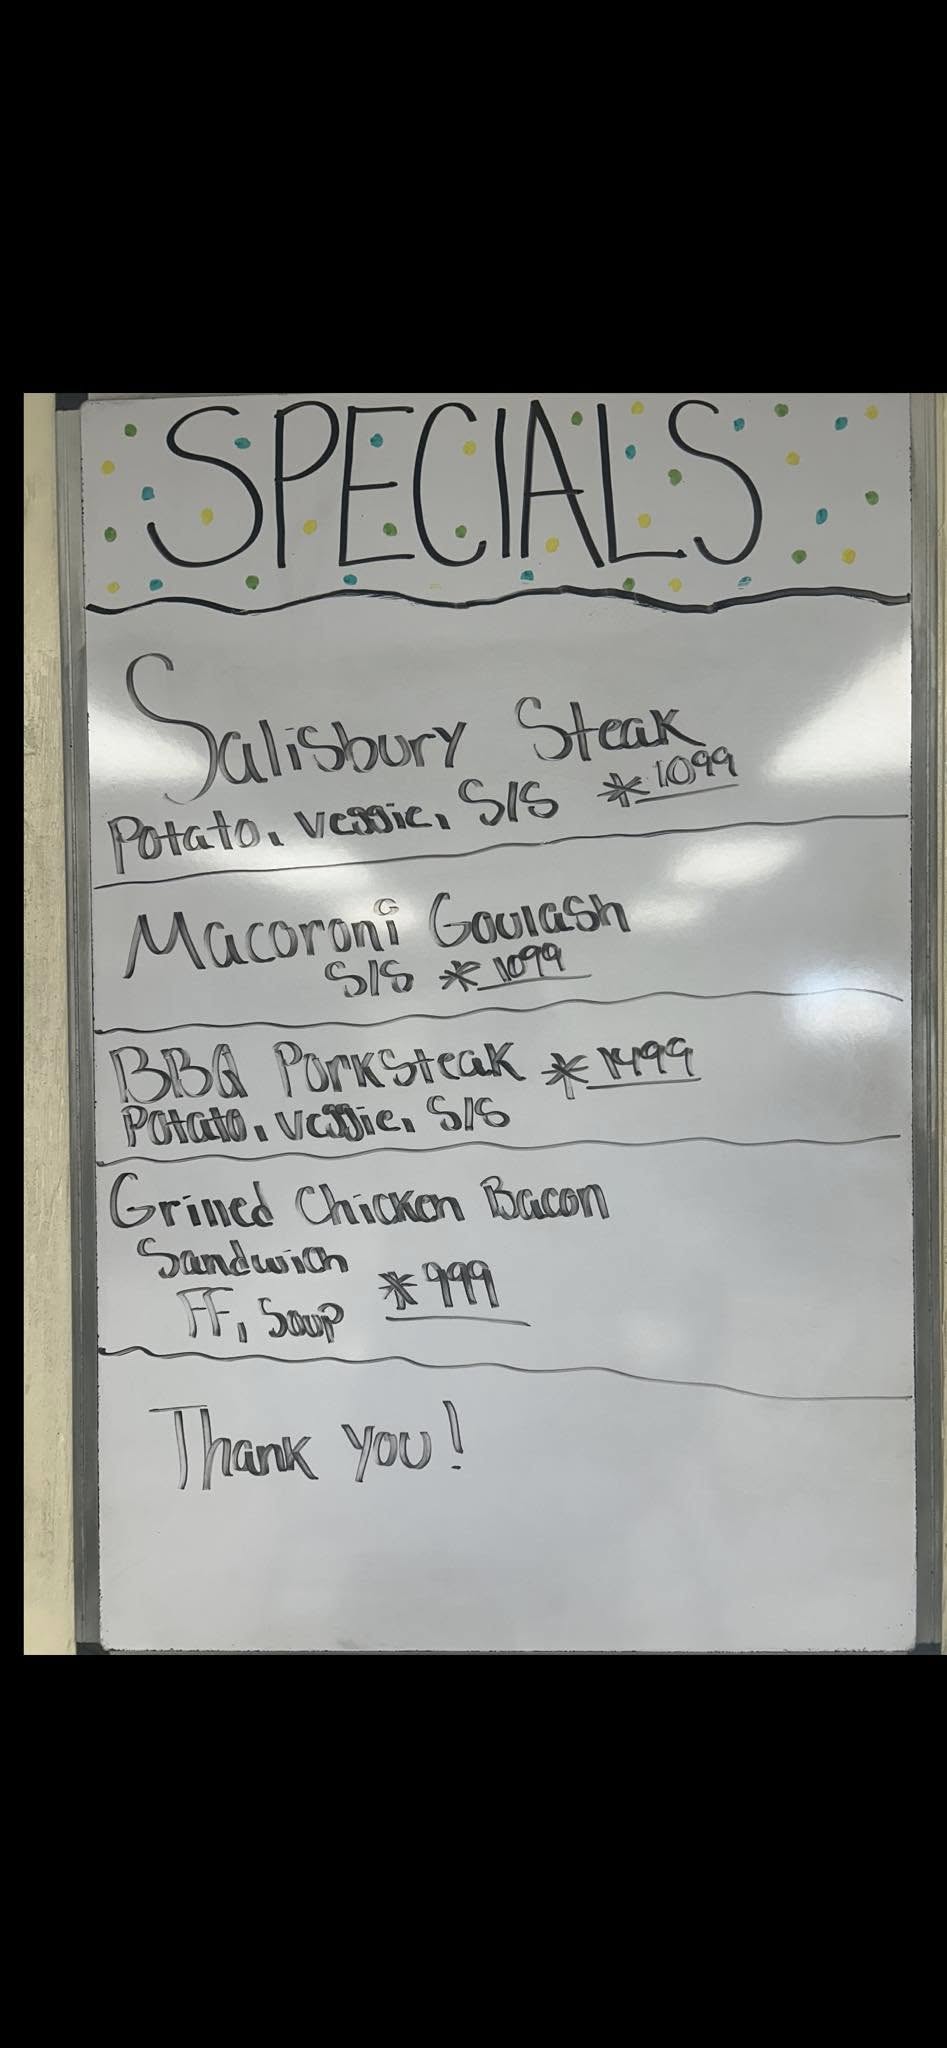 SPECIALS
Salisbury Steak
Potato, veggie, S/S * 1099
Macoroni Goulash
S/S * 1099
BBQ Porksteak * 1499
Potato, veggie, S/S
Grilled Chicken Bacon
Sandwich
FF, Soup * 999
Thank you!